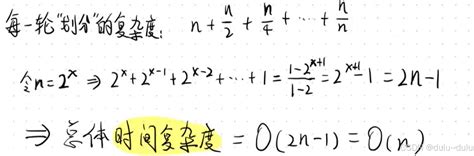 每一轮“划分”的复杂度: n + n/2 + n/4 + ⋯ + n/n
令n=2^x ⇒ 2^x + 2^(x-1) + 2^(x-2) + ⋯ + 1 = (1-2^(x+1))/(1-2) = 2^(x+1) - 1 = 2n-1
⇒ 总体时间复杂度 = O(2n-1) = O(n)
@dulu~dulu